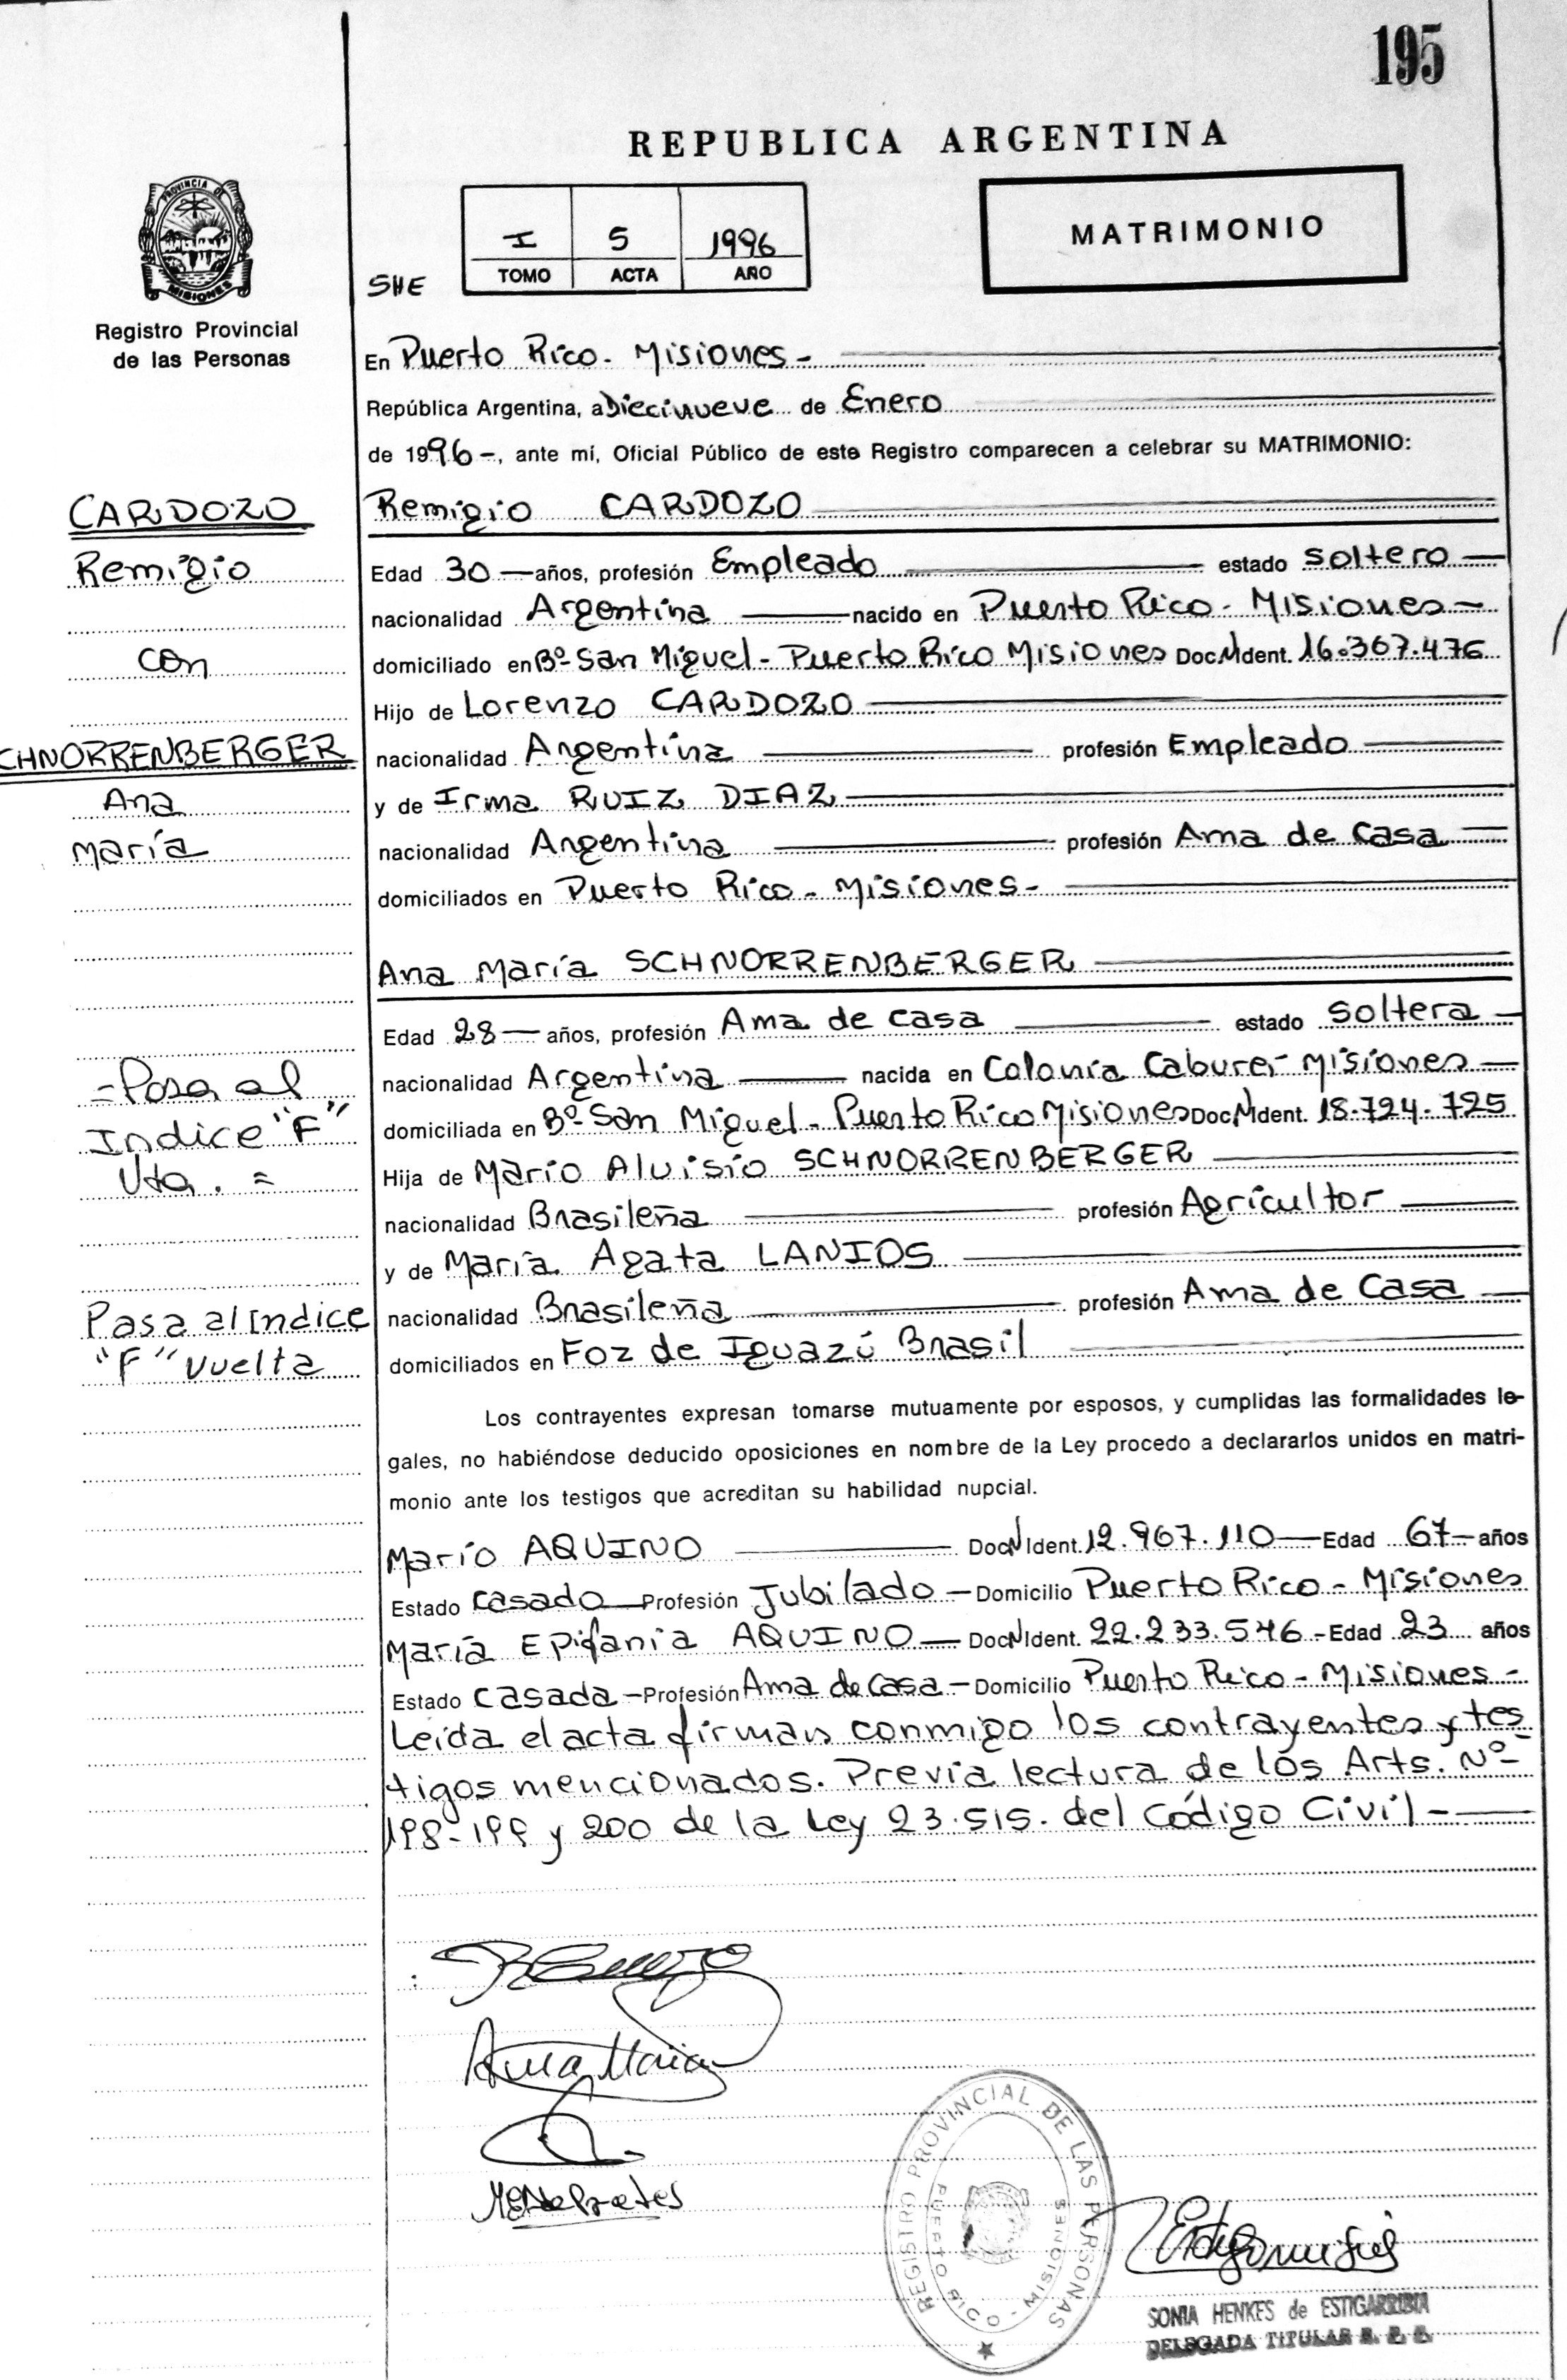 195
REPUBLICA ARGENTINA
PROVINCIA DE
MISIONES
Registro Provincial
de las Personas
SHE
I 5 1996
TOMO ACTA AÑO
MATRIMONIO
En Puerto Rico - Misiones -
República Argentina, a Diecinueve de Enero
de 1996-, ante mí, Oficial Público de este Registro comparecen a celebrar su MATRIMONIO:
CARDOZO
Remigio
con
CHNORRENBERGER
Ana
María
=Pasa al
Indice "F"
Vta. =
Pasa al Indice
"F" vuelta
Remigio CARDOZO
Edad 30 — años, profesión Empleado estado soltero —
nacionalidad Argentina — nacido en Puerto Rico - Misiones -
domiciliado en Bº San Miguel - Puerto Rico Misiones Doc. N Ident. 16.367.476
Hijo de Lorenzo CARDOZO
nacionalidad Argentina profesión Empleado
y de Irma RUIZ DIAZ
nacionalidad Argentina profesión Ama de Casa
domiciliados en Puerto Rico - Misiones -
Ana María SCHNORRENBERGER
Edad 28 — años, profesión Ama de casa estado soltera
nacionalidad Argentina — nacida en Colonia Caburei - Misiones
domiciliada en Bº San Miguel - Puerto Rico Misiones Doc. N Ident. 18.724.725
Hija de Mario Aluisio SCHNORRENBERGER
nacionalidad Brasileña profesión Agricultor
y de María Agata LANIOS
nacionalidad Brasileña profesión Ama de Casa
domiciliados en Foz de Iguazú Brasil
Los contrayentes expresan tomarse mutuamente por esposos, y cumplidas las formalidades le-
gales, no habiéndose deducido oposiciones en nombre de la Ley procedo a declararlos unidos en matri-
monio ante los testigos que acreditan su habilidad nupcial.
Mario AQUINO — Doc. N Ident. 12.967.110 — Edad 67 — años
Estado casado — Profesión Jubilado — Domicilio Puerto Rico - Misiones
María Epifania AQUINO — Doc. N Ident. 22.233.546 - Edad 23 años
Estado casada — Profesión Ama de Casa — Domicilio Puerto Rico - Misiones -
Leída el acta firman conmigo los contrayentes y tes
tigos mencionados. Previa lectura de los Arts. Nº
198-199 y 200 de la Ley 23.515. del Código Civil -
Ana Maria
REGISTRO PROVINCIAL DE LAS PERSONAS
PUERTO RICO - MISIONES
SONIA HENKES de ESTIGARRIBIA
DELEGADA TITULAR R. P. P.